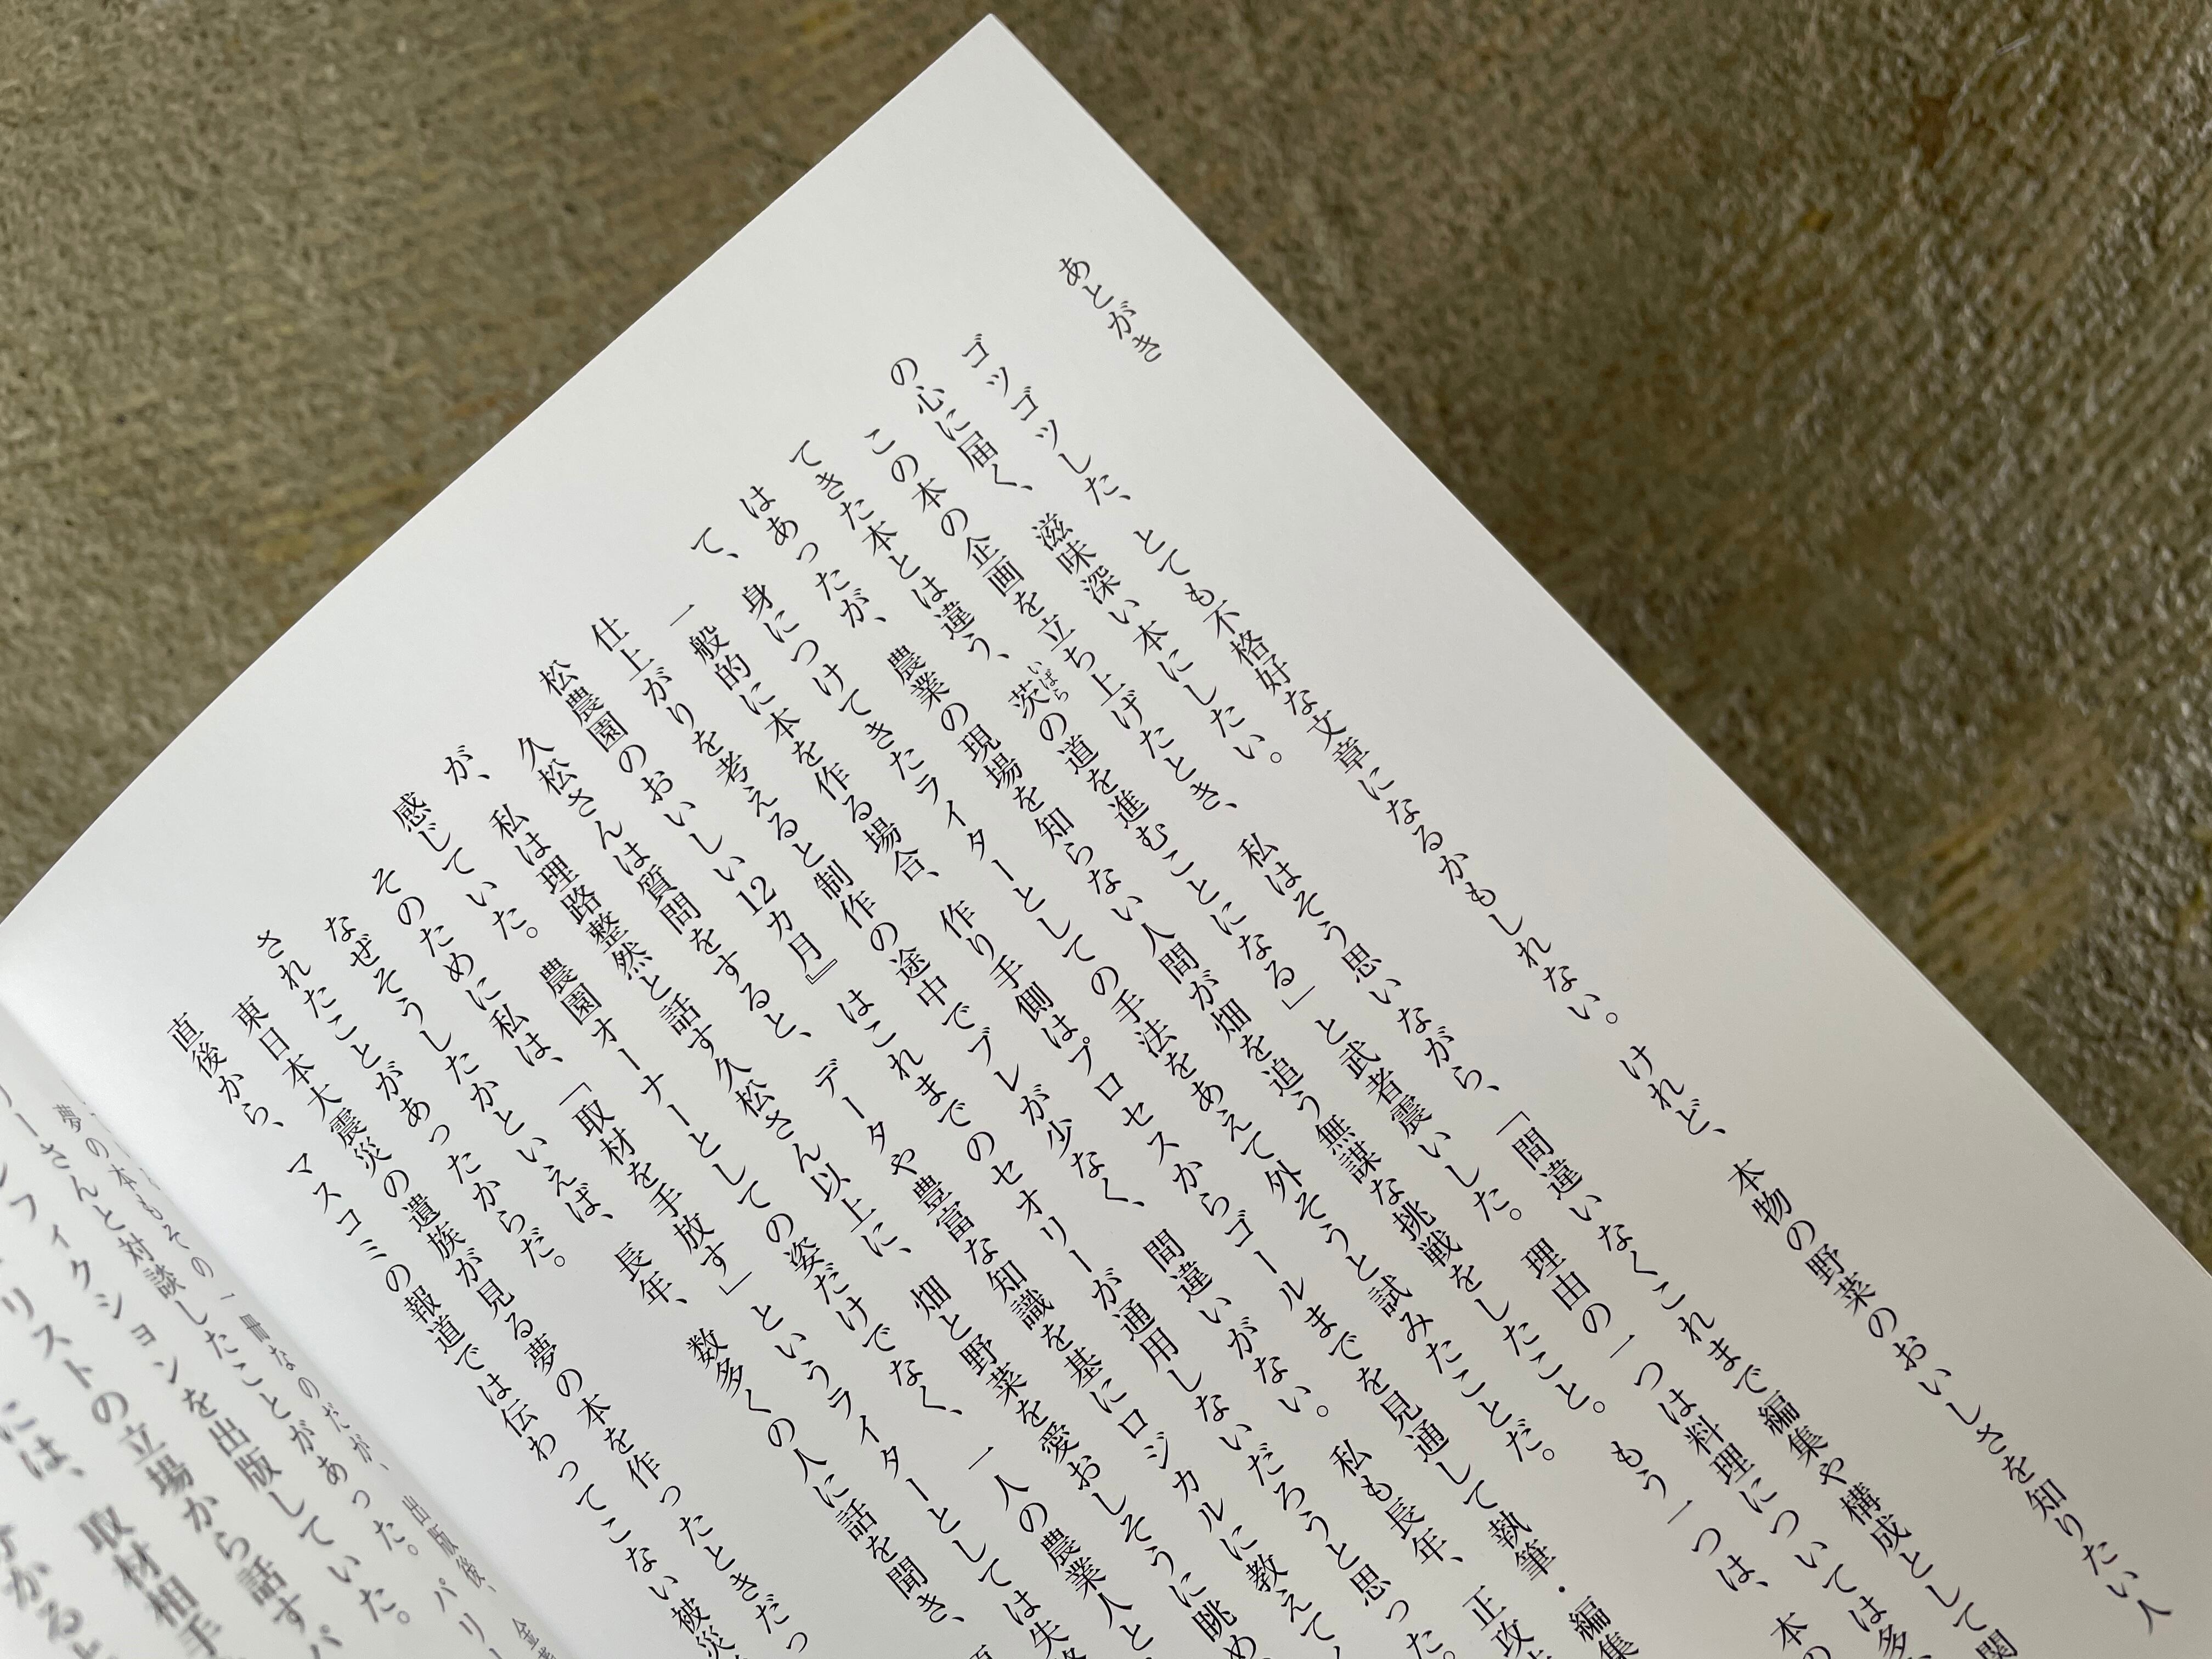 あとがき
ゴツゴツした、とても不格好な文章になるかもしれない。けれど、本物の野菜のおいしさを知りたい人
の心に届く、滋味深い本にしたい。
この本の企画を立ち上げたとき、私はそう思いながら、「間違いなくこれまで編集や構成として関
てきた本とは違う、茨いばらの道を進むことになる」と武者震いした。理由の一つは料理については多
はあったが、農業の現場を知らない人間が畑を追う無謀な挑戦をしたこと。もう一つは、本の
て、身につけてきたライターとしての手法をあえて外そうと試みたことだ。
一般的に本を作る場合、作り手側はプロセスからゴールまでを見通して執筆・編集
仕上がりを考えると制作の途中でブレが少なく、間違いがない。私も長年、正攻
松農園のおいしい12カ月』はこれまでのセオリーが通用しないだろうと思った。
久松さんは質問をすると、データや豊富な知識を基にロジカルに教えて
が、私は理路整然と話す久松さん以上に、畑と野菜を愛おしそうに眺め
感じていた。農園オーナーとしての姿だけでなく、一人の農業人と
そのために私は、「取材を手放す」というライターとしては失格
なぜそうしたかといえば、長年、数多くの人に話を聞き、
されたことがあったからだ。
東日本大震災の遺族が見る夢の本を作ったときだっ
直後から、マスコミの報道では伝わってこない被災
夢の本もその一冊なのだが、出版後、金
ーさんと対談したことがあった。パリー
ンフィクションを出版していた。
リストの立場から話すパ
には、取材相手
かると